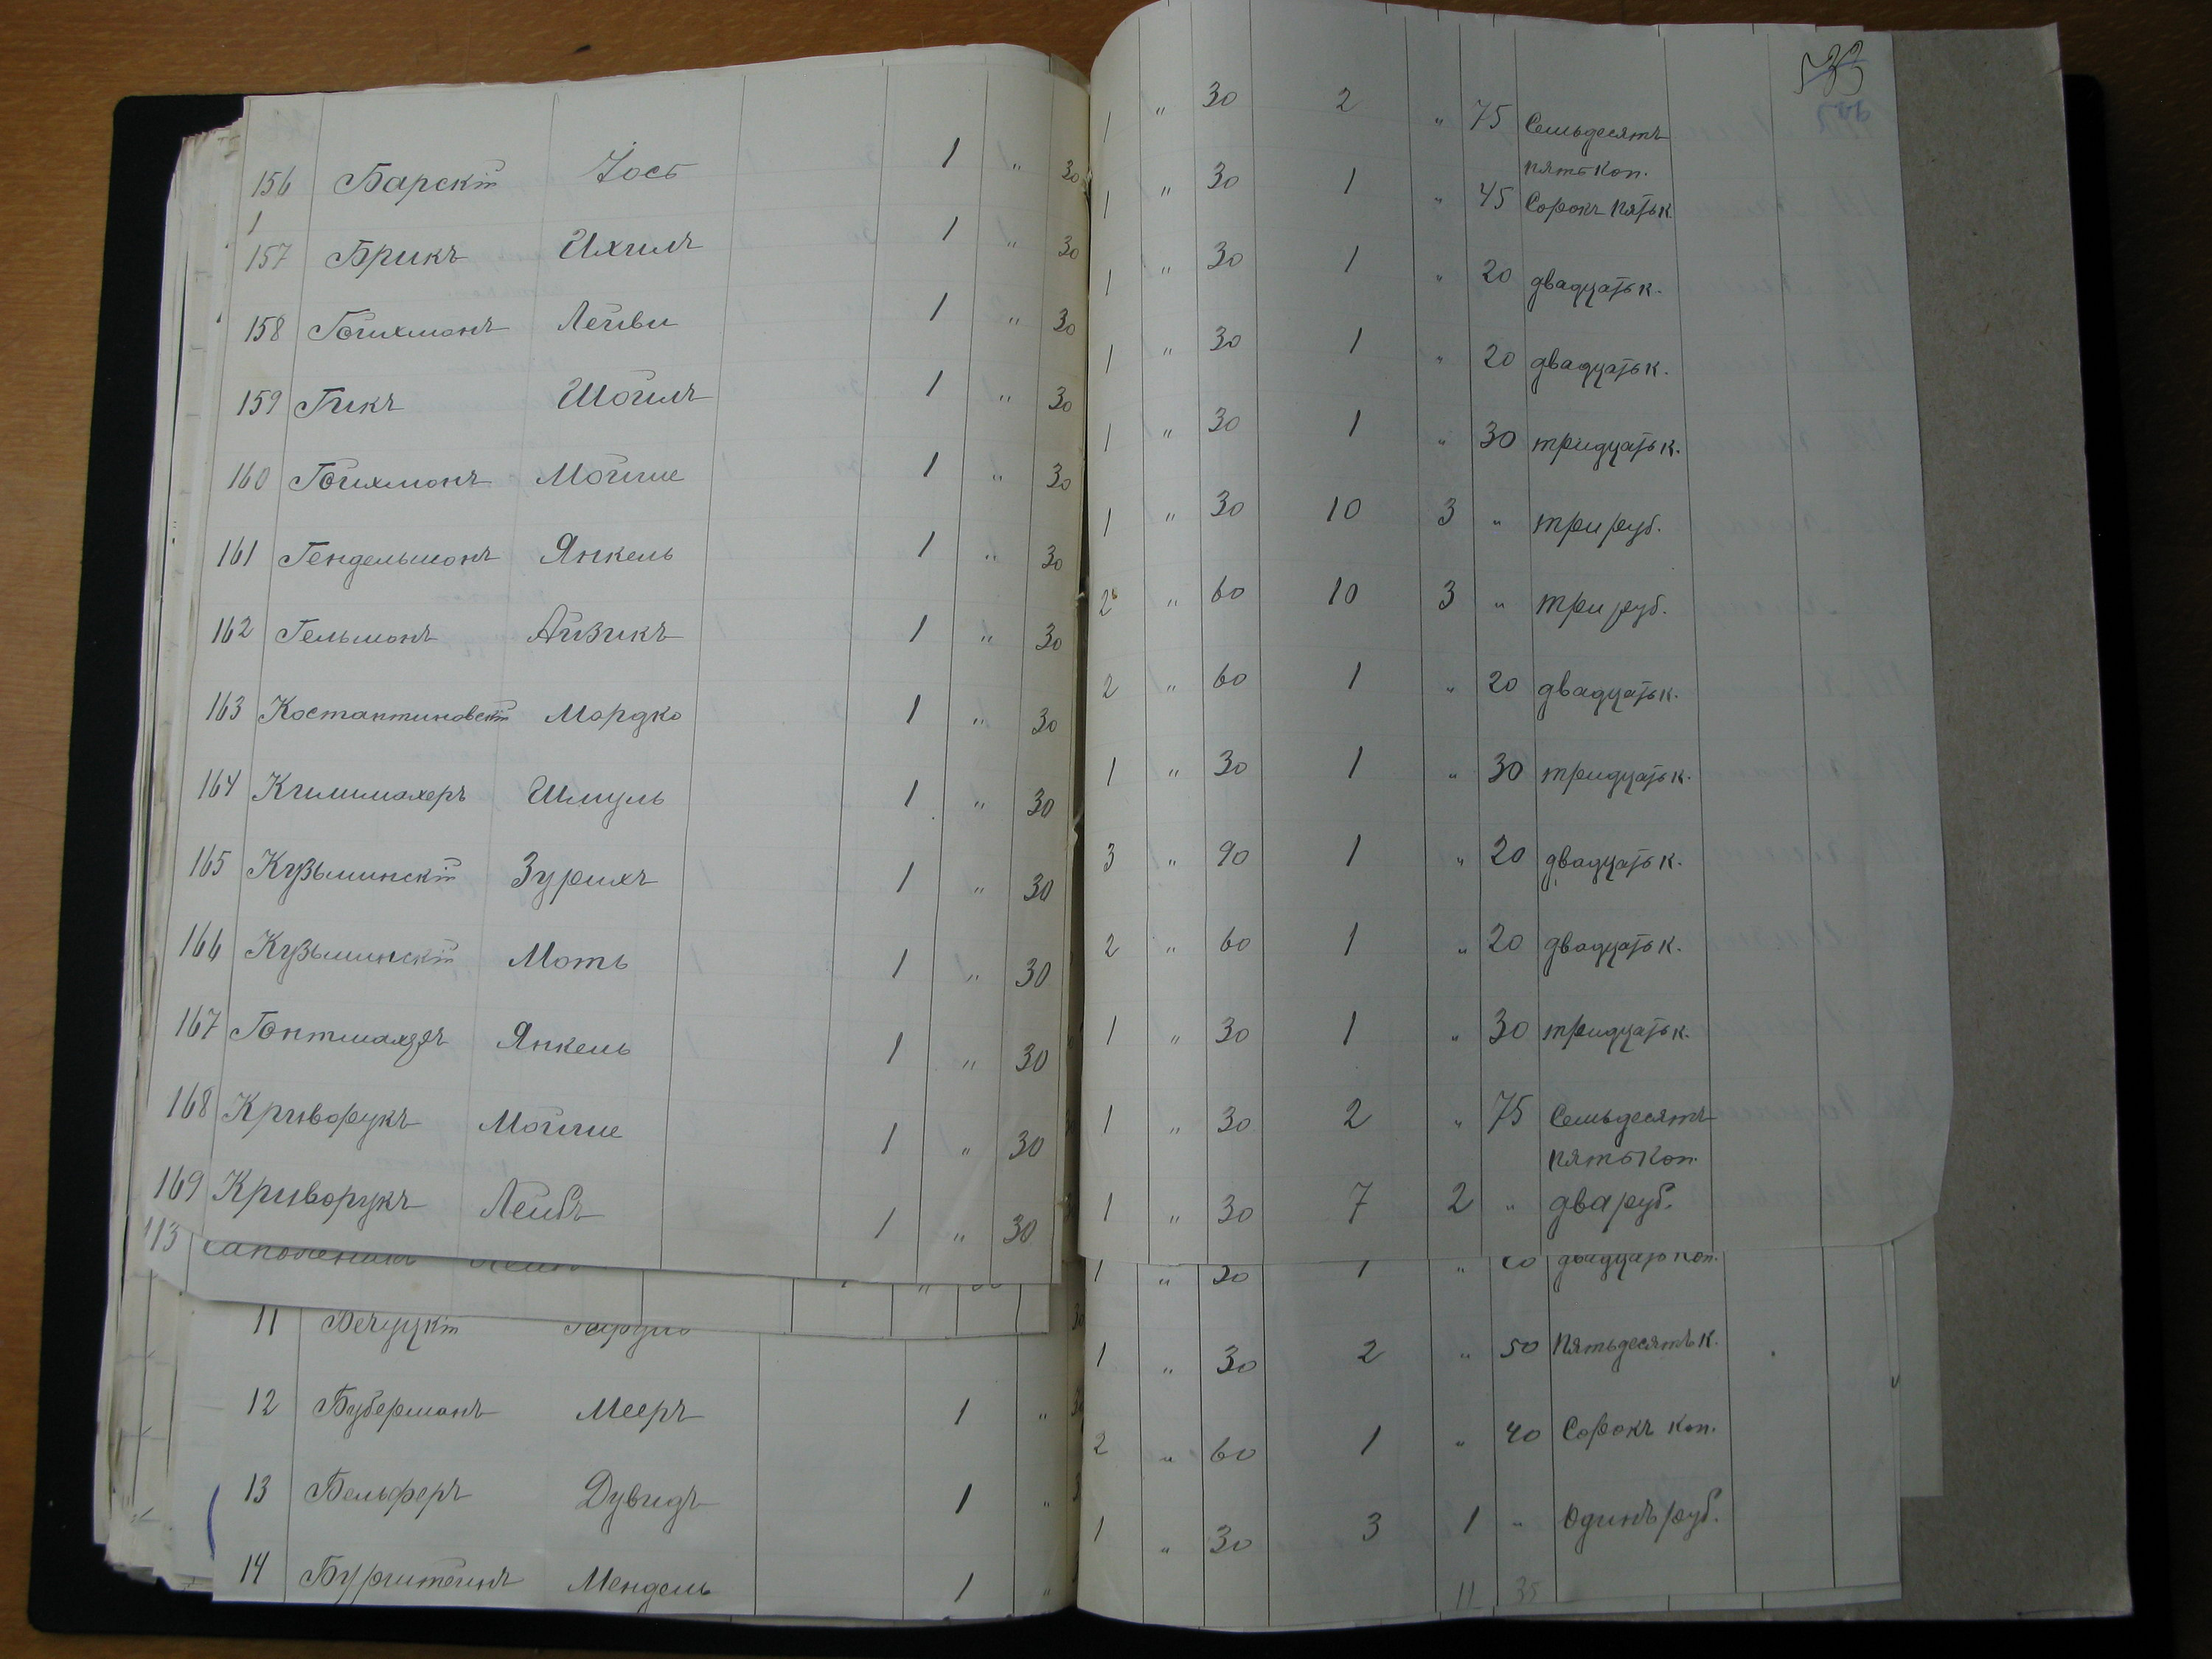 533
156 Барскій Іось 1 " 30 1 " 30 2 " 75 Семьдесятъ
пять коп.
157 Брикъ Ихилъ 1 " 30 1 " 30 1 " 45 Сорокъ пять к.
158 Гойхманъ Лейви 1 " 30 1 " 30 1 " 20 двадцать к.
159 Гикъ Шойлъ 1 " 30 1 " 30 1 " 20 двадцать к.
160 Гойхманъ Мойше 1 " 30 1 " 30 1 " 30 тридцать к.
161 Гендельманъ Янкель 1 " 30 1 " 30 10 3 " три руб.
162 Гельманъ Айзикъ 1 " 30 2 " 60 10 3 " три руб.
163 Костантиновскій Мордко 1 " 30 2 " 60 1 " 20 двадцать к.
164 Килимахеръ Шмуль 1 " 30 1 " 30 1 " 30 тридцать к.
165 Кузьминскій Зурихъ 1 " 30 3 " 90 1 " 20 двадцать к.
166 Кузьминскій Моть 1 " 30 2 " 60 1 " 20 двадцать к.
167 Гонтмахеръ Янкель 1 " 30 1 " 30 1 " 30 тридцать к.
168 Криворукъ Мойше 1 " 30 1 " 30 2 " 75 Семьдесятъ
пять коп.
169 Криворукъ Лейбъ 1 " 30 1 " 30 7 2 " два руб.
113 1 " 30 1 " 20 двадцать коп.
11 1 " 30 2 " 50 Пятьдесятъ к.
12 Буберманъ Мееръ 1 " 30 2 " 60 1 " 40 Сорокъ коп.
13 Бельферъ Дувидъ 1 " 1 " 30 3 1 " Одинъ руб.
14 Бурштейнъ Мендель 1 "
11 35